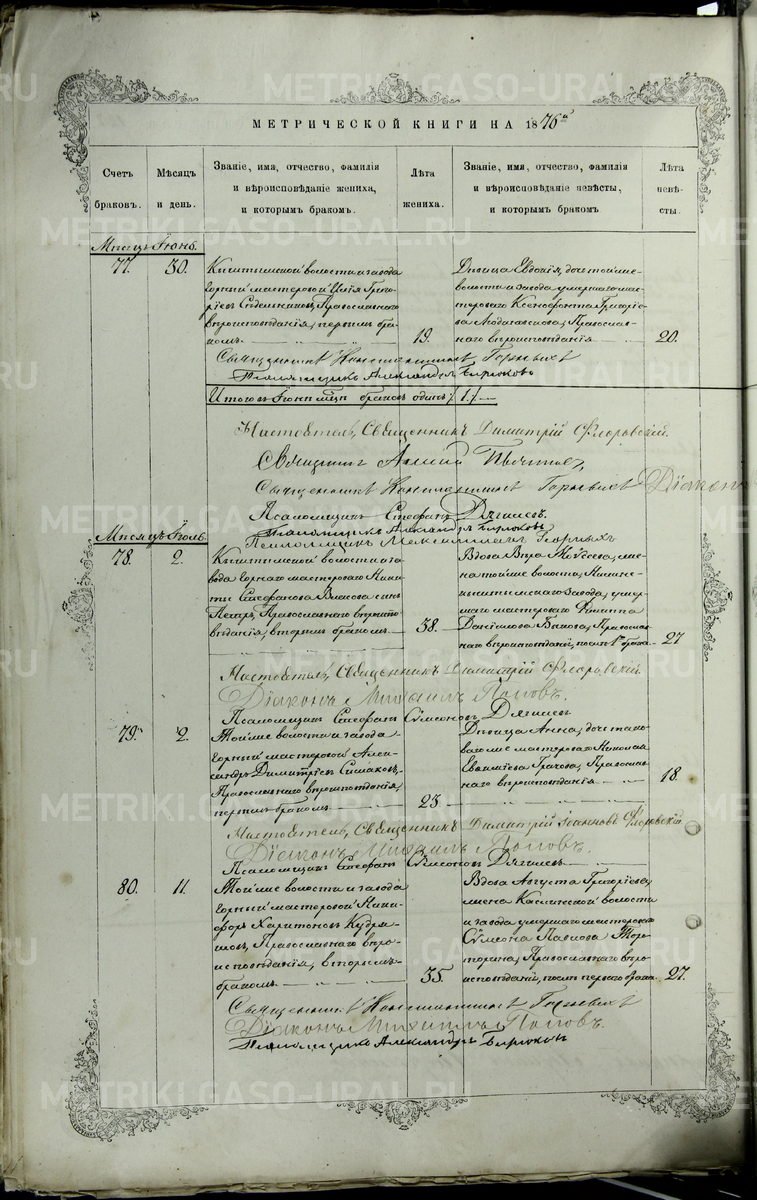 МЕТРИЧЕСКОЙ КНИГИ НА 1876й
Счетъ браковъ.
Мѣсяцъ и день.
Званіе, имя, отчество, фамилія и вѣроисповѣданіе жениха, и которымъ бракомъ.
Лѣта жениха.
Званіе, имя, отчество, фамилія и вѣроисповѣданіе невѣсты, и которымъ бракомъ
Лѣта невѣсты.
Мѣсяцъ Іюнь.
77.
30.
Кыштымской волости и завода
горный мастеровой Илія Григо-
ріевъ Сѣдельниковъ, Православнаго
вѣроисповѣданія, первымъ бра-
комъ.
19.
Дѣвица Евдокія, дочь той же
волости и завода умершаго мас-
тероваго Ксенофонта Григоріе-
ва, Православ-
наго вѣроисповѣданія
20.
Священникъ Константинъ Горныхъ
Псаломщикъ Александръ Бирюковъ
Итого въ Іюнѣ мцѣ браковъ одинъ /1./
Настоятель, Священникъ Димитрій Флоровскій.
Священникъ
Священникъ Константинъ Горныхъ
Діаконъ
Псаломщикъ Стефанъ Дягилевъ.
Псаломщикъ Александръ Бирюковъ
Псаломщикъ Максимиліанъ
Мѣсяцъ Іюль.
78.
2.
Кыштымской волости и за-
вода горнаго мастероваго Ники-
ты Стефанова Власова сынъ
Петръ, Православнаго вѣроиспо-
вѣданія, вторымъ бракомъ
38.
Вдова Вѣра Моѵсеева, же-
на той же волости, Нижне-
кыштымскаго завода, умер-
шаго мастероваго Филиппа
Даніилова Быкова, Православ-
наго вѣроисповѣданія, послѣ 1го брака
27
Настоятель, Священникъ Димитрій Флоровскій.
Діаконъ Михаилъ Поповъ.
Псаломщикъ Стефанъ Сѵмеоновъ Дягилевъ
79.
2.
Той же волости и завода
горный мастеровой Алек-
сандръ Димитріевъ Симаковъ,
Православнаго вѣроисповѣданія,
первымъ бракомъ
23.
Дѣвица Анна, дочь тако-
ваго же мастероваго Николая
Евѳиміева Грачова, Православ-
наго вѣроисповѣданія
18.
Настоятель, Священникъ Димитрій Іоанновъ Флоровскій
Діаконъ Михаилъ Поповъ.
Псаломщикъ Стефанъ Сѵмеоновъ Дягилевъ
80.
11.
Той же волости и завода
горный мастеровой Ники-
форъ Харитоновъ Кудря-
шовъ, Православнаго вѣро-
исповѣданія, вторымъ
бракомъ
35.
Вдова Августа Григоріева,
жена Каслинской волости
и завода умершаго мастероваго
Сѵмеона Павлова
Православнаго вѣро-
исповѣданія, послѣ перваго брака
27.
Священникъ Константинъ Горныхъ
Діаконъ Михаилъ Поповъ.
Псаломщикъ Александръ Бирюковъ
METRIKI.GASO-URAL.RU